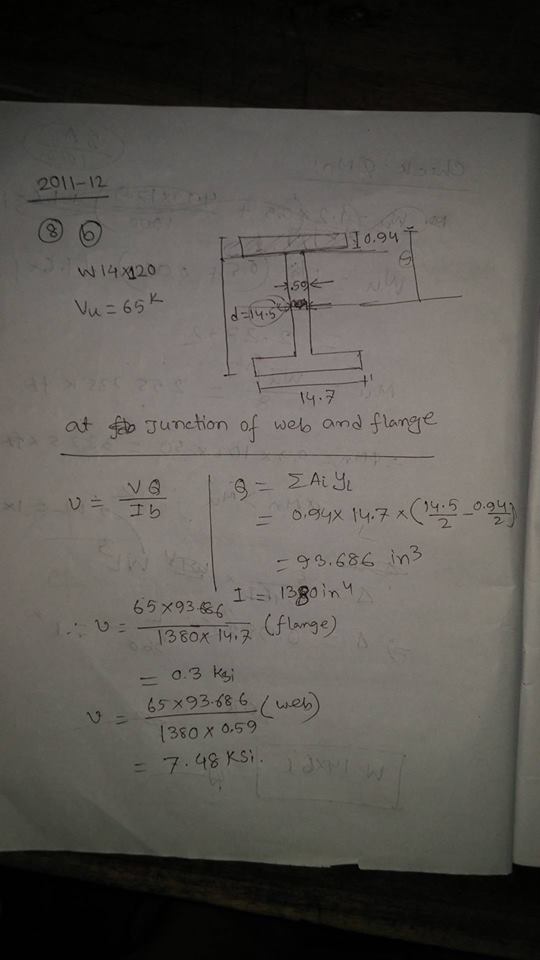 2011-12
8 b
W14x120
Vu = 65 K
0.94
.59
d=14.5"
14.7"
at Junction of web and flange
υ = VQ / Ib
Q = ΣAiyi
= 0.94 x 14.7 x (14.5/2 - 0.94/2)
= 93.686 in³
I = 1380 in⁴
∴ υ = 65 x 93.686 / 1380 x 14.7 (flange)
= 0.3 Ksi
υ = 65 x 93.686 / 1380 x 0.59 (web)
= 7.48 Ksi.